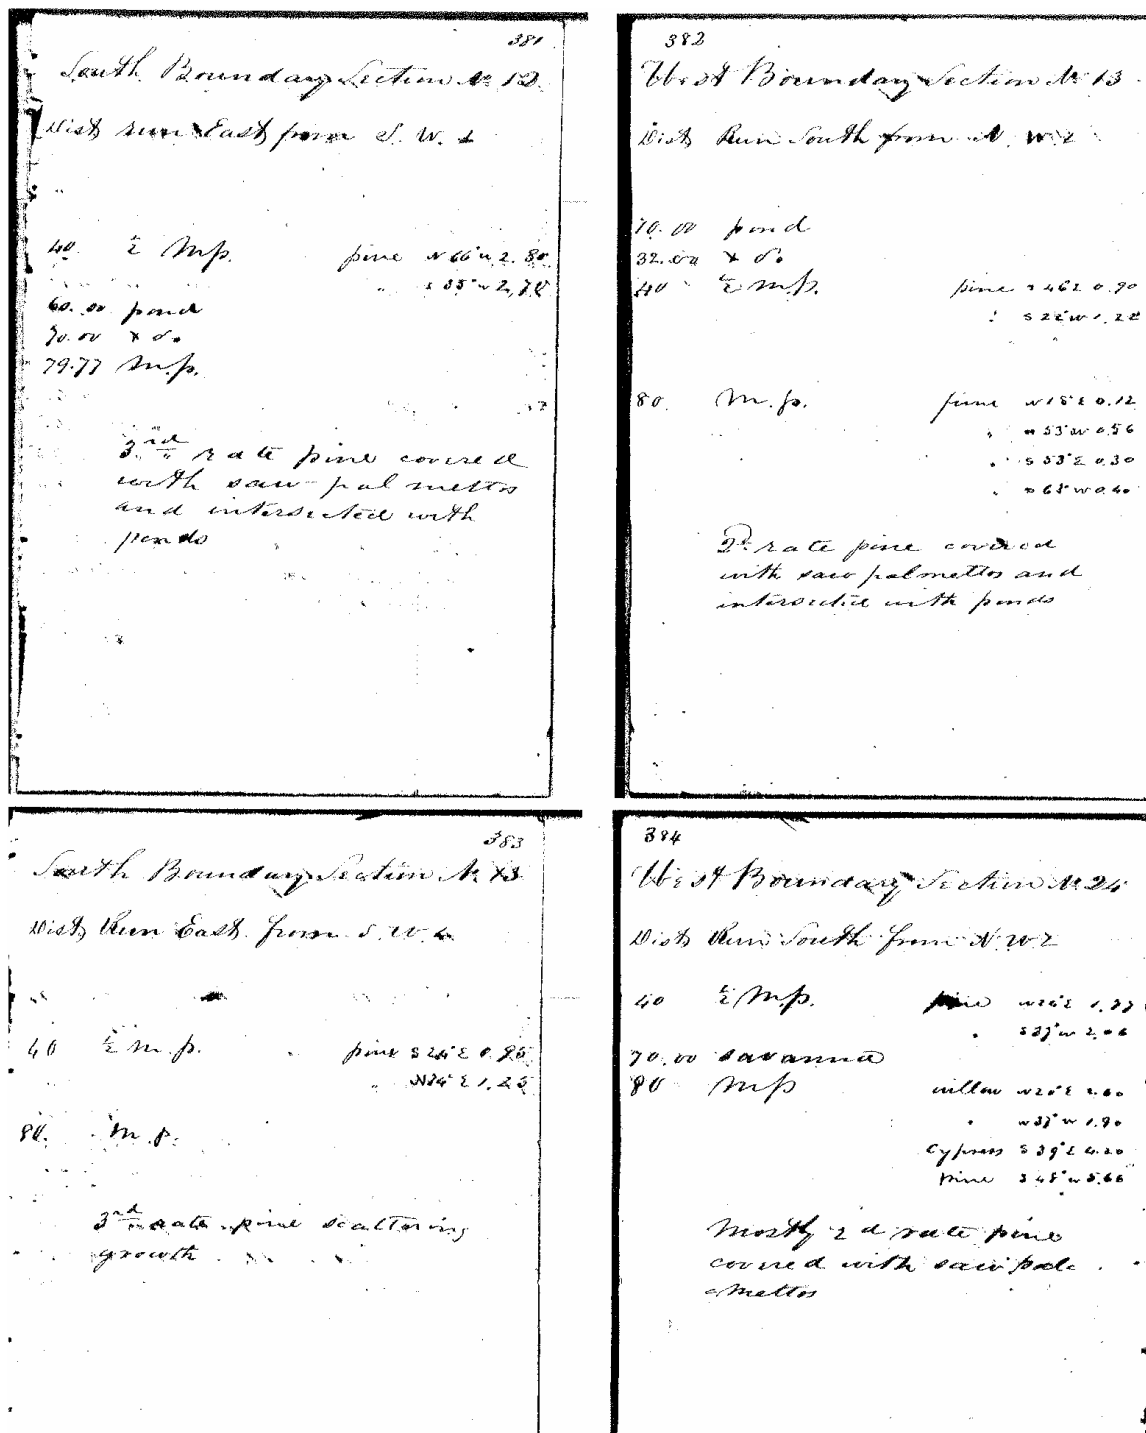 381
South Boundary Section No 12
Dist run East from S. W.
40. ½ M.p. pine N 66° W 2.80
" S 35° W 2,78
60.00 pond
70.00 x do
79.77 M.p.
3rd rate pine covered
with saw-palmettos
and intersected with
ponds
382
West Boundary Section No 13
Dist Run South from N. W.
pond
32.00 x do
40 ½ M.p. pine S 46 E 0.90
" S 22° W 1.22
80. M.p. pine N 18° E 0.12
" N 53° W 0.56
" S 53° E 0.30
" S 65° W 0.40
2d rate pine covered
with saw palmettos and
intersected with ponds
383
South Boundary Section No 13
Dist Run East from S. W.
40 ½ M.p. pine S 24° E 0.95
" N 24° E 1.25
80. M.p.
3rd rate pine scattering
growth
384
West Boundary Section No 24
Dist Run South from N W
40 ½ M.p. pine N 26° E 1.77
" S 37° W 2.06
70.00 savanna
80 M.p willow N 20° E 2.60
" N 37° W 1.90
Cypress S 39° E 4.20
pine S 45° W 5.66
Mostly 2d rate pine
covered with saw pal
-mettos